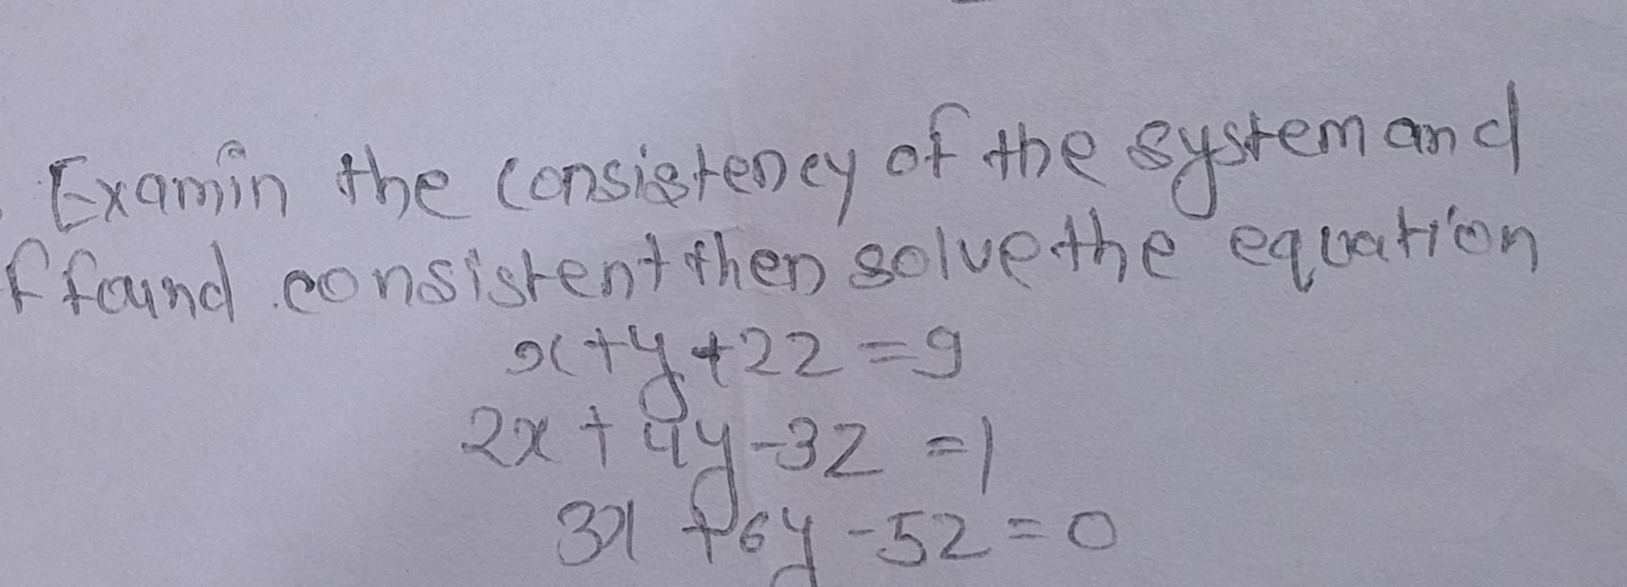 Examin the consistency of the system and
f found consistent then solve the equation
x+y+2z=9
2x+4y-3z=1
3x+6y-5z=0